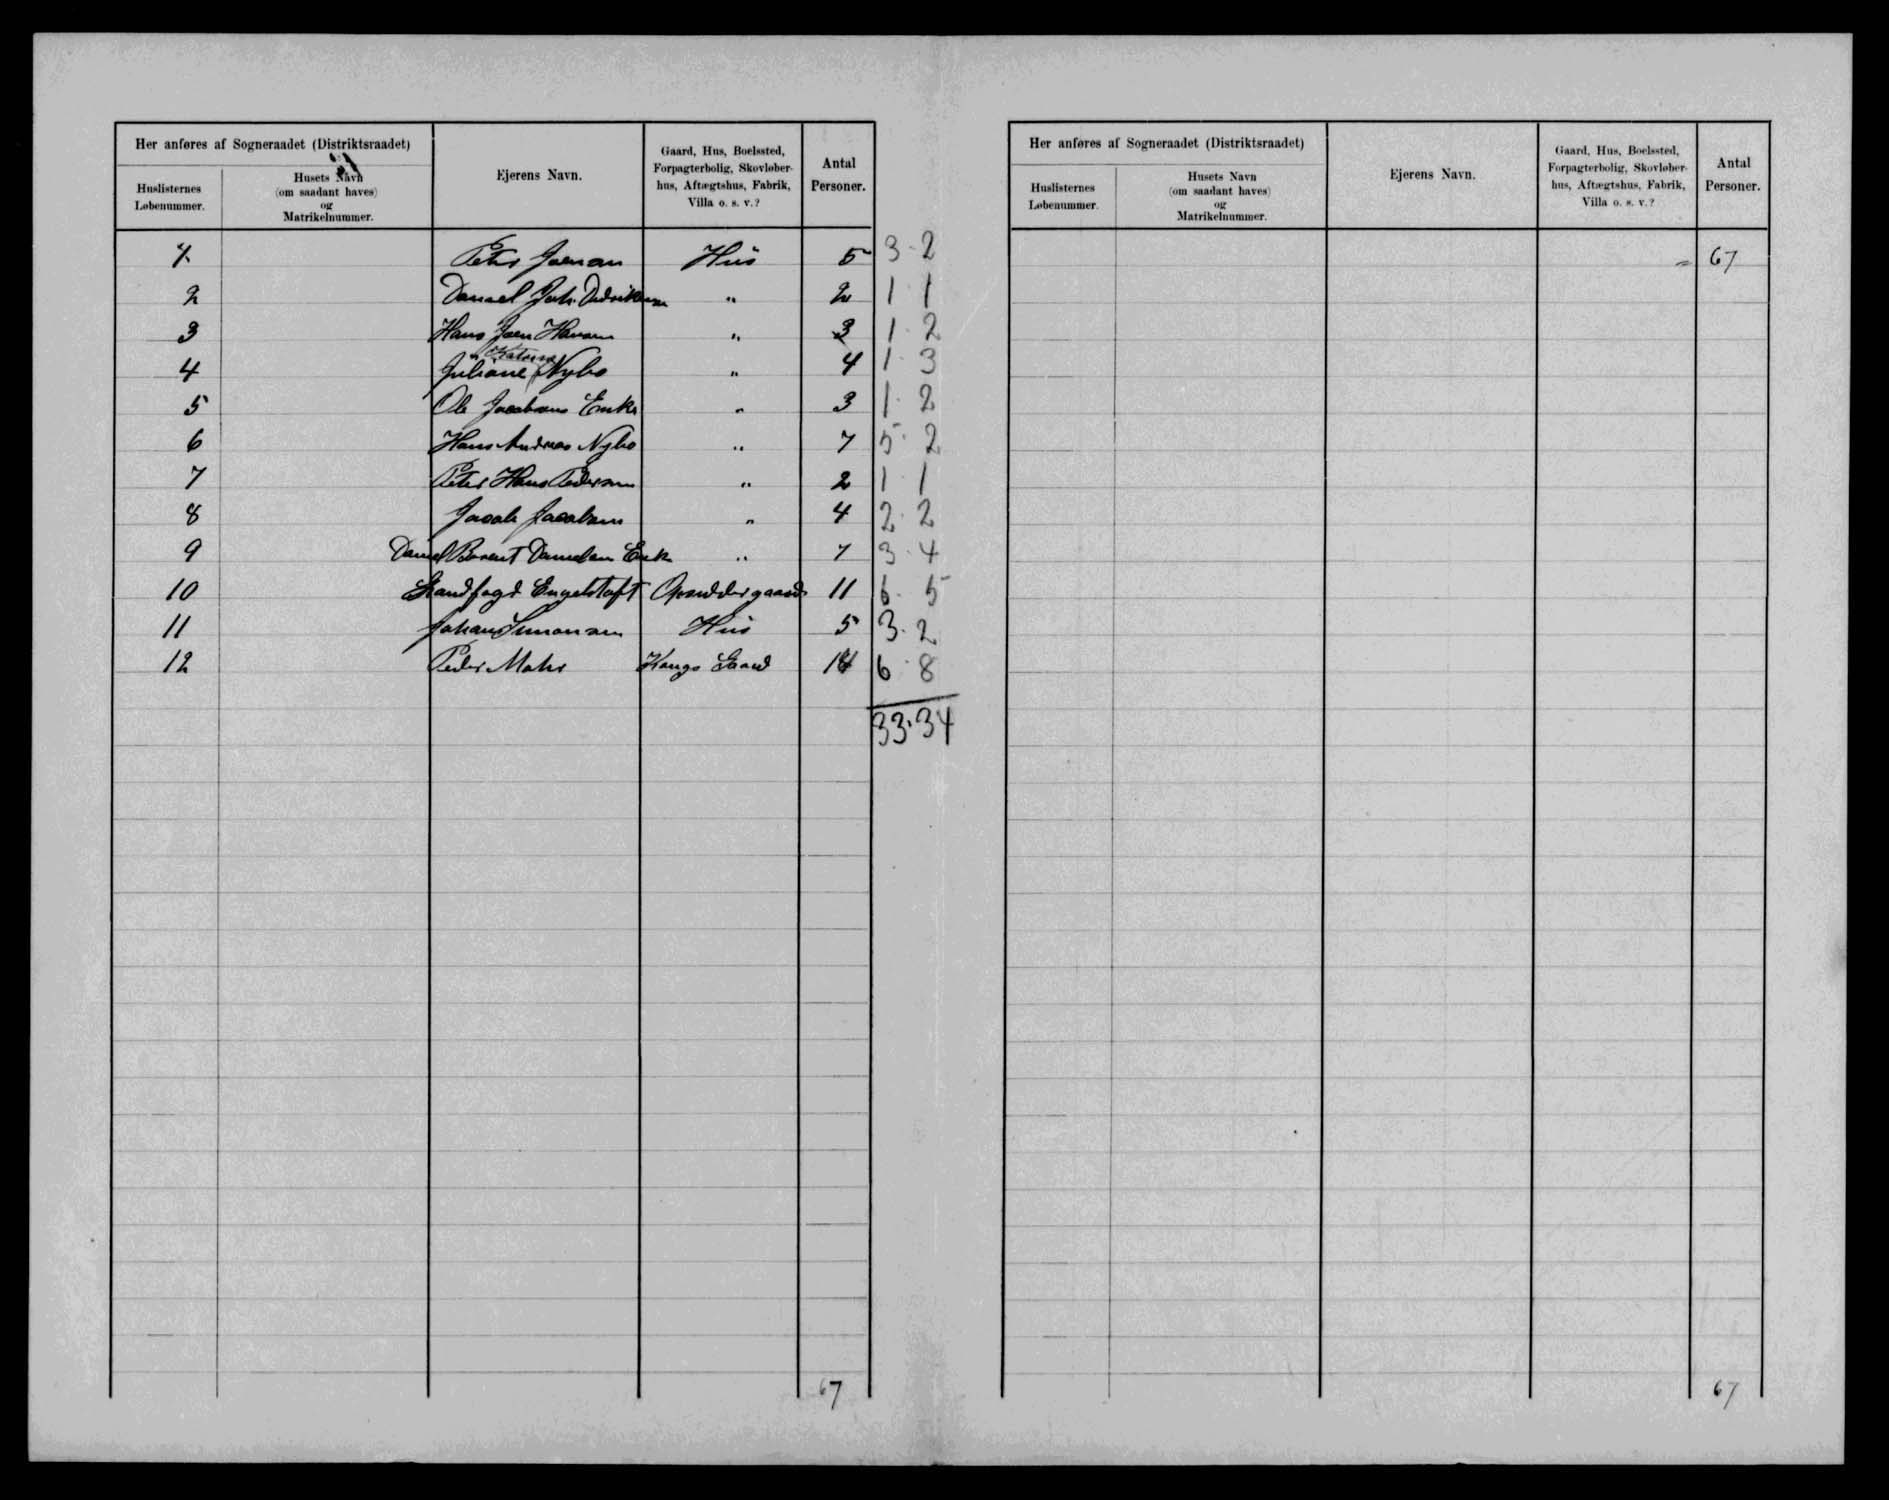 Her anføres af Sogneraadet (Distriktsraadet)
Huslisternes Løbenummer.
Husets Navn (om saadant haves) og Matrikelnummer.
Ejerens Navn.
Gaard, Hus, Boelssted, Forpagterbolig, Skovløber-hus, Aftægtshus, Fabrik, Villa o. s. v.?
Antal Personer.
1. Peter Joensen Hus 5 3 · 2
2 Daniel Joh. Didriksen " 2 1 1
3 Hans Joen Hansen " 3 1 · 2
Katrine
4 Juliane Nybo " 4 1 · 3
5 Ole Jacobsens Enke " 3 1 · 2
6 Hans Andreas Nybo " 7 5 · 2
7 Peter Hans Pedersen " 2 1 1
8 Jacob Jacobsen " 4 2 · 2
9 Daniel Berent Danielsen Enk " 7 3 · 4
10 Landfogd Engelstoft 11 6 · 5
11 Johan Simonsen Hus 5 3 · 2
12 Peder Mohr Kongs Gaard 14 6 · 8
33 · 34
67
Her anføres af Sogneraadet (Distriktsraadet)
Huslisternes Løbenummer.
Husets Navn (om saadant haves) og Matrikelnummer.
Ejerens Navn.
Gaard, Hus, Boelssted, Forpagterbolig, Skovløber-hus, Aftægtshus, Fabrik, Villa o. s. v.?
Antal Personer.
= 67
67